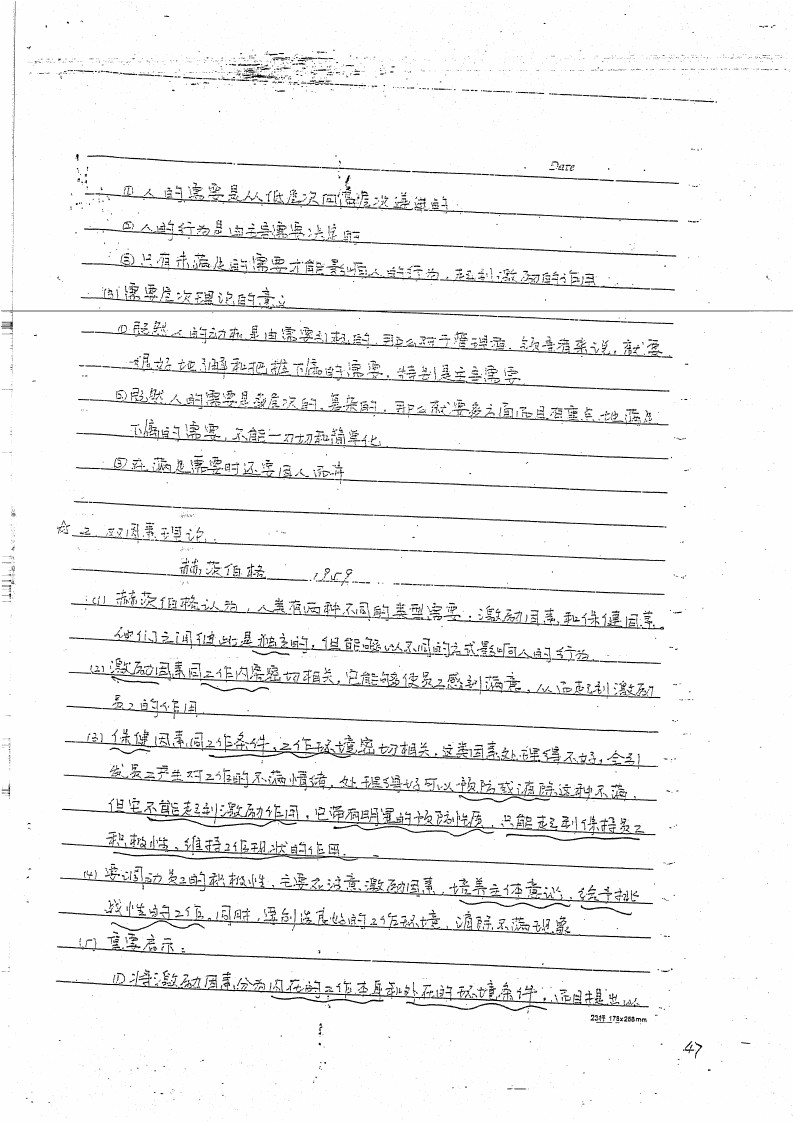 Date
① 人的需要是从低层次向高层次递进的
② 人的行为是由主导需要决定的
③ 只有未满足的需要才能影响人的行为，起到激励的作用
(4) 需要层次理论的意义
① 既然人的动机是由需要引起的，那么对于管理者、领导者来说，就要
很好地了解和把握下属的需要，特别是主导需要
② 既然人的需要是多层次的、复杂的，那么就要多方面而且有重点地满足
下属的需要，不能一刀切和简单化
③ 在满足需要时还要因人而异
☆ 2. 双因素理论.
赫茨伯格 1959
(1) 赫茨伯格认为，人类有两种不同的类型需要：激励因素和保健因素。
他们之间彼此是独立的，但能够以不同的方式影响人的行为
(2) 激励因素同工作内容密切相关，它能够使员工感到满意，从而起到激励
员工的作用
(3) 保健因素同工作条件、工作环境密切相关，这类因素处理得不好，会引
发员工产生对工作的不满情绪，处理得好可以预防或消除这种不满，
但它不能起到激励作用，它带有明显的预防性质，只能起到保持员工
积极性、维持工作现状的作用.
(4) 要调动员工的积极性，主要在注意激励因素，培养主体意识，给予挑
战性的工作。同时，要创造良好的工作环境，消除不满现象
(5) 重要启示：
① 将激励因素分为内在的工作本身和外在的环境条件，而且提出以
23行 178x266mm
47